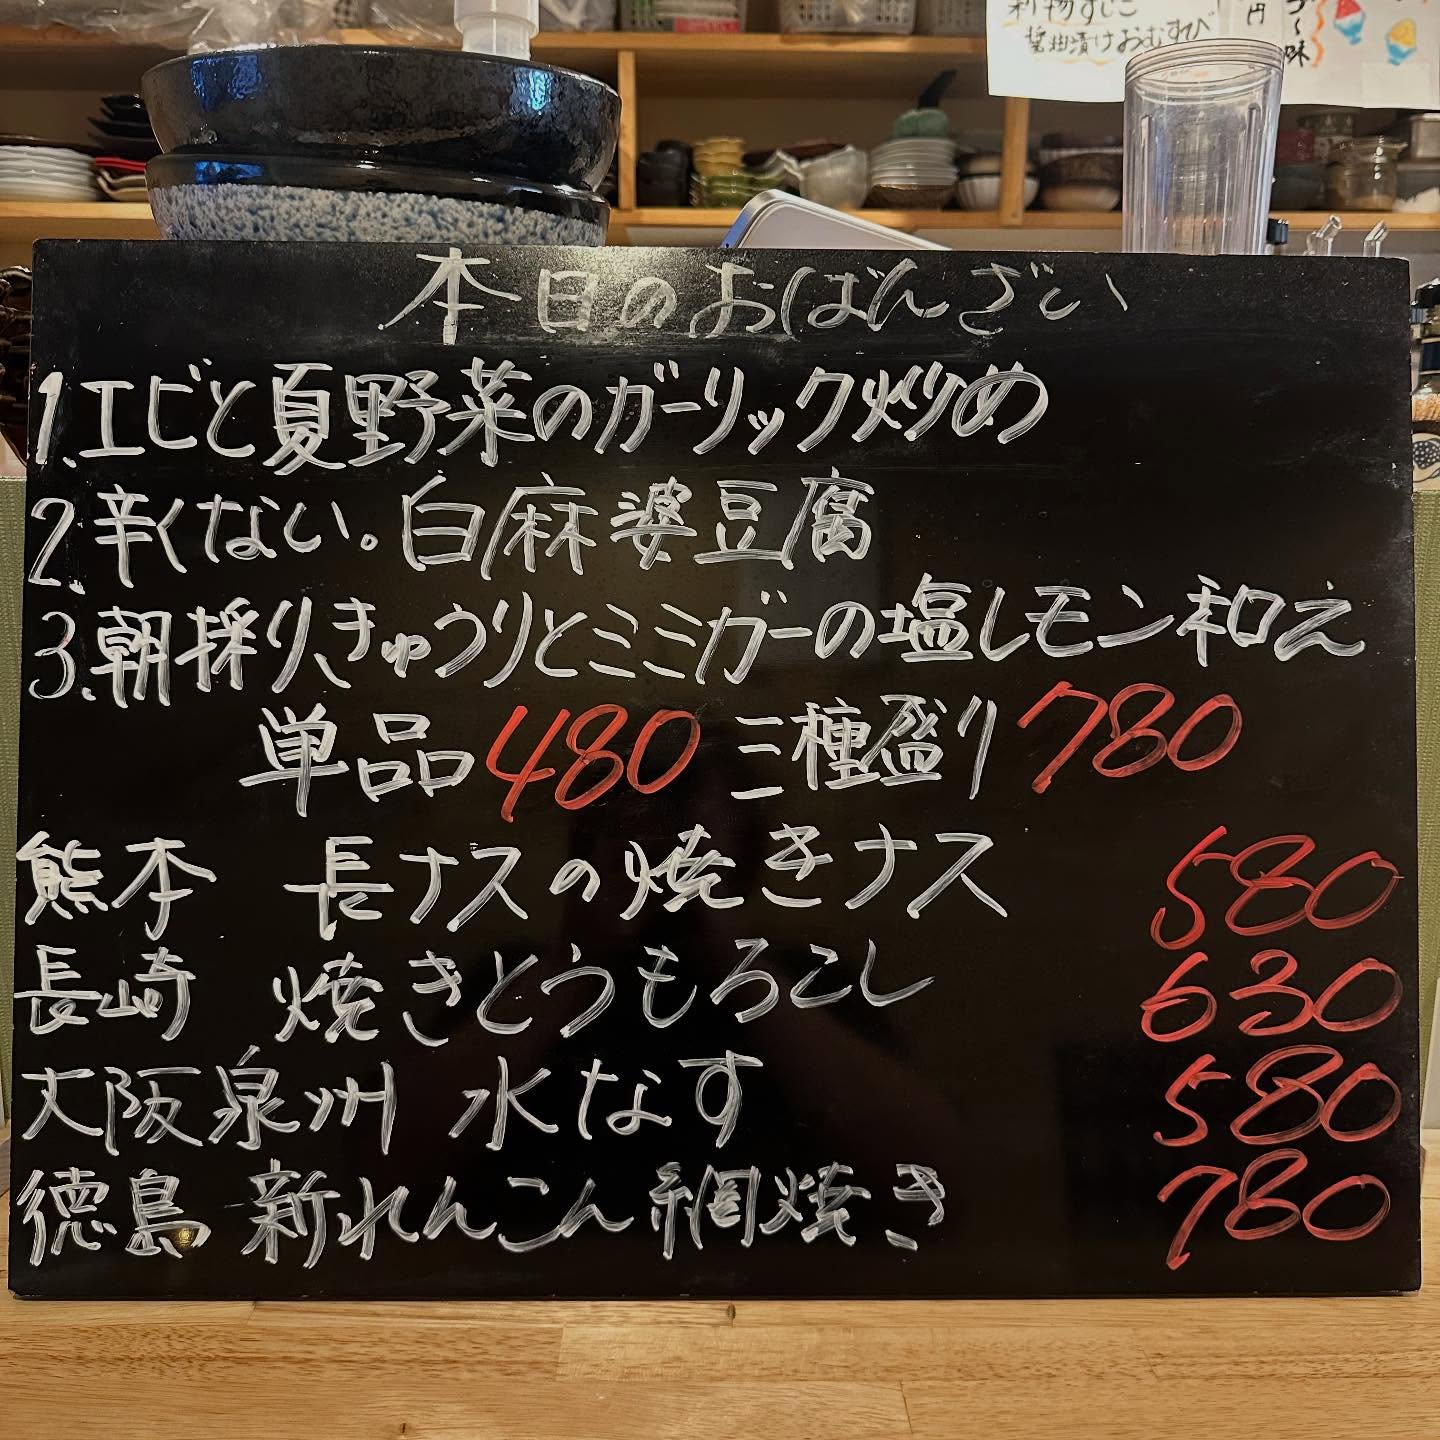 醤油漬けおむすび
円
味
本日のおばんざい
1.エビと夏野菜のガーリック炒め
2.辛くない。白麻婆豆腐
3.朝採りきゅうりとミミガーの塩レモン和え
単品480 三種盛り780
熊本 長ナスの焼きナス 580
長崎 焼きとうもろこし 630
大阪泉州 水なす 580
徳島 新れんこん網焼き 780